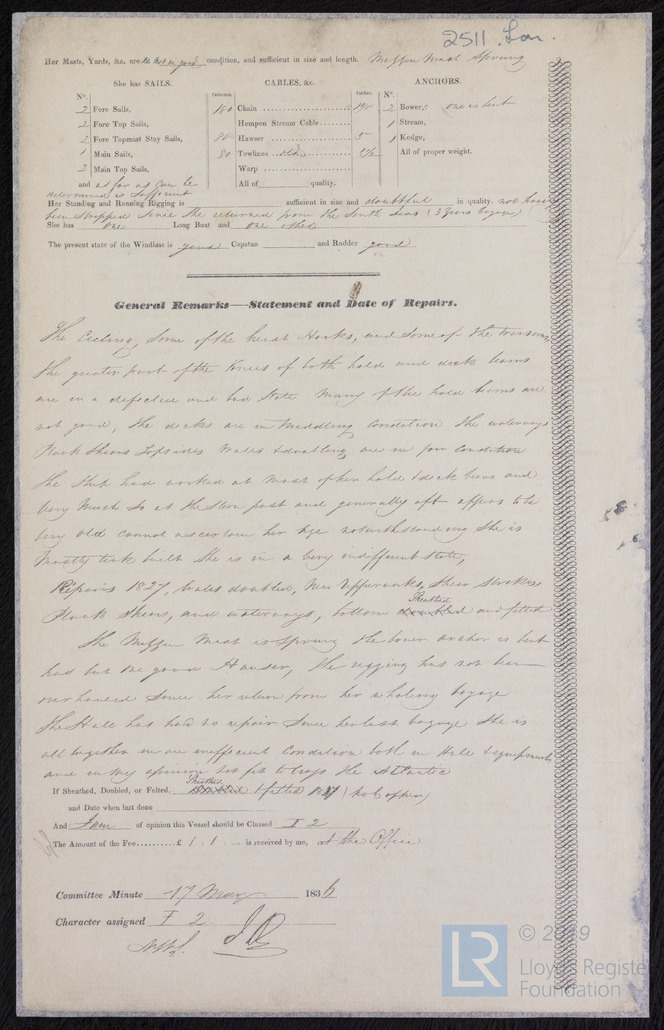 2511. Lon.
Her Masts, Yards, &c. are in good condition, and sufficient in size and length. Mizzen Mast Sprung
She has SAILS.
CABLES, &c.
ANCHORS.
N°.
Fathoms.
Inches.
N°.
2 Fore Sails,
180 Chain
2 Bower, one is bent
2 Fore Top Sails,
Hempen Stream Cable
1 Stream,
2 Fore Topmast Stay Sails,
80 Hawser 5
1 Kedge,
1 Main Sails,
80 Towlines
All of proper weight.
2 Main Top Sails,
Warp
and as far as can be
All of quality.
determined is sufficient
Her Standing and Running Rigging is sufficient in size and doubtful in quality. not having
been stripped since she returned from the South Seas (3 Years voyage)
She has one Long Boat and one other
The present state of the Windlass is good Capstan and Rudder good
General Remarks—Statement and Date of Repairs.
The Cieling, Some of the breast Hooks, and some of the transoms,
the greater part of the Knees of both hold and deck beams
are in a defective and bad State Many of the hold beams are
not good, the decks are in Middling Condition the waterways
Plank Sheers Topsides Wales & doubling are in fair condition
the Ship had worked at most of her hold & deck beams and
very Much so at the Stern post and generally aft appears to be
very old Cannot ascertain her Age notwithstanding She is
Mostly teak built She is in a very indifferent State,
Repairs 1827, Wales doubled, New Upperworks, Sheer Strakes
Plank Sheers, and waterways, bottom Sheathed and felted
The Mizzen Mast is Sprung the bower anchor is bent
has but one good Hawser, the rigging has not been
overhauled Since her return from her whaling voyage
The Hull has had no repair Since her last voyage She is
all together in an inefficient Condition both in Hull & equipments
and in my opinion not fit to Cross the Atlantic
If Sheathed, Doubled, or Felted, Sheathed & felted
and Date when last done
And I am of opinion this Vessel should be Classed I 2
The Amount of the Fee £ 1 : 1 : – is received by me, at the Office
Committee Minute 17 May 1836
Character assigned I 2
LR © 2019
Lloyd's Register
Foundation